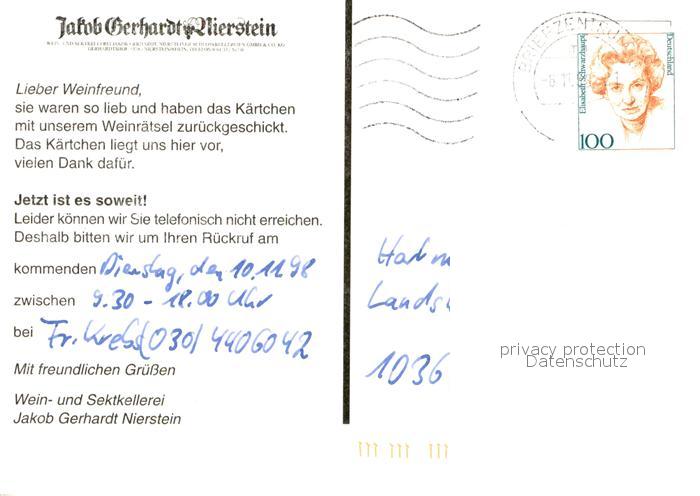 Jakob Gerhardt Nierstein
Lieber Weinfreund,
sie waren so lieb und haben das Kärtchen
mit unserem Weinrätsel zurückgeschickt.
Das Kärtchen liegt uns hier vor,
vielen Dank dafür.
Jetzt ist es soweit!
Leider können wir Sie telefonisch nicht erreichen.
Deshalb bitten wir um Ihren Rückruf am
kommenden Dienstag, den 10.11.98
zwischen 9.30 - 18.00 Uhr
bei Fr. Krebs (030) 4406042
Mit freundlichen Grüßen
Wein- und Sektkellerei
Jakob Gerhardt Nierstein
BRIEFZENTRUM
Elisabeth Schwarzhaupt
Deutschland
100
Hart
Lands
1036
privacy protection
Datenschutz